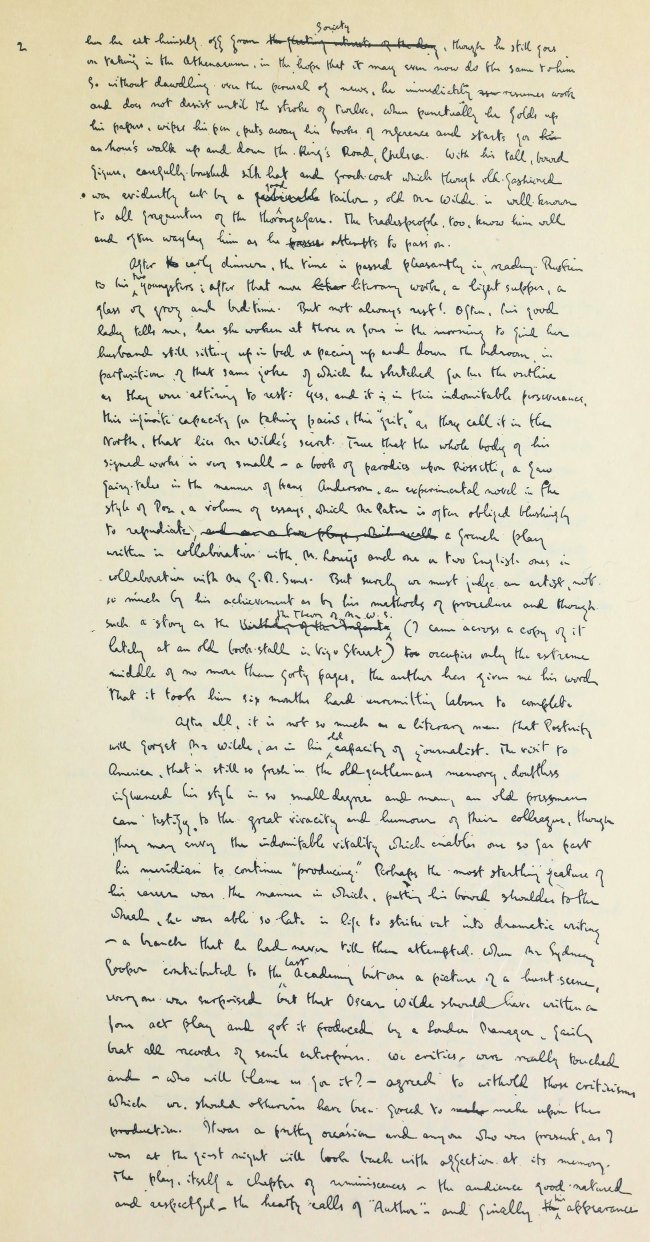 Society
2
has he cut himself off from the fleeting interests of the day, though he still goes
on taking in the Athenaeum, in the hope that it may even now do the same to him
So without dawdling over the perusal of news, he immediately resumes work
and does not desist until the stroke of twelve, when punctually he folds up
his papers, wipes his pen, puts away his books of reference and starts for his
an hour's walk up and down the King's Road, Chelsea. With his tall, bowed
figure, carefully-brushed silk hat and frock-coat which though old-fashioned
good
was evidently cut by a fashionable tailor, old Mr Wilde is well known
to all frequenters of the thoroughfare. The tradespeople, too, know him well
and often waylay him as he passes attempts to pass on.
After early dinner, the time is passed pleasantly in reading Ruskin
to his two youngsters; after that more literary work, a light supper, a
glass of grog and bed-time. But not always rest! Often, his good
lady tells me, has she woken at three or four in the morning to find her
husband still sitting up in bed or pacing up and down the bedroom, in
parturition of that same joke of which he sketched for her the outline
as they were retiring to rest: yes, and it is in this indomitable perseverance,
this infinite capacity for taking pains, this "grit," as they call it in the
North, that lies Mr Wilde's secret. True that the whole body of his
signed works is very small – a book of parodies upon Rossetti, a few
fairy-tales in the manner of Hans Anderson, an experimental novel in the
style of Poe, a volume of essays, which Mr Pater is often obliged blushingly
to repudiate, and one or two plays, which a French play
written in collaboration with M. Louÿs and one or two English ones in
collaboration with Mr G. R. Sims. But surely we must judge an artist, not
so much by his achievement as by his methods of procedure and though
The Theory of Mr W. S.
such a story as the Birthday of the Infanta (I came across a copy of it
lately at an old book-stall in Vigo Street) occupies only the extreme
middle of no more than forty pages, the author has given me his word
that it took him six months hard unremitting labour to complete.
After all, it is not so much as a literary man that Posterity
will forget Mr Wilde, as in his old capacity of journalist. The visit to
America, that is still so fresh in the old gentleman's memory, doubtless
influenced his style in no small degree and many an old pressman
can testify to the great vivacity and humour of their colleague, though
they may envy the indomitable vitality which enables one so far past
his meridian to continue "producing." Perhaps the most startling feature of
his career was the manner in which, putting his bowed shoulder to the
wheel, he was able so late in life to strike out into dramatic writing
– a branch that he had never till then attempted. When Mr Sydney
Cooper contributed to the last Academy but one a picture of a hunt-scene,
everyone was surprised but that Oscar Wilde should have written a
four act play and got it produced by a London Manager, fairly
beat all records of senile enterprise. We critics, were really touched
and – who will blame us for it? – agreed to withold those criticisms
which we should otherwise have been forced to make make upon the
production. It was a pretty occasion and anyone who was present, as I
was at the first night will look back with affection at its memory.
The play, itself a chapter of reminiscences – the audience good-natured
and respectful – the hearty calls of "Author" – and finally the his appearance